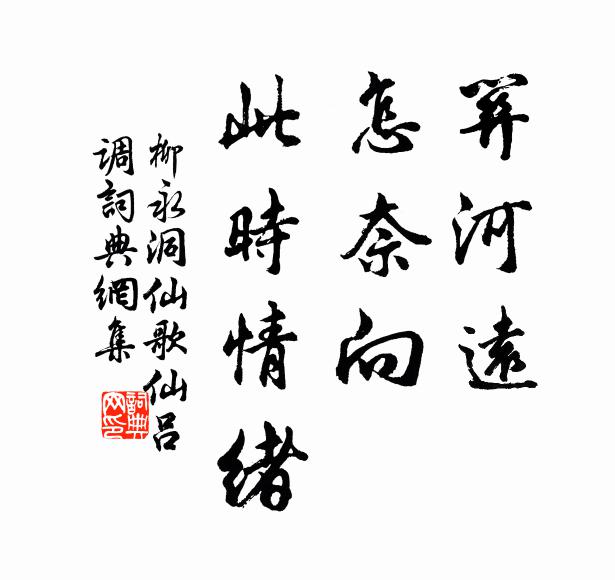 關河遠
怎奈向
此時情緒
柳永洞仙歌仙吕
调詞典網集
詞典
网印